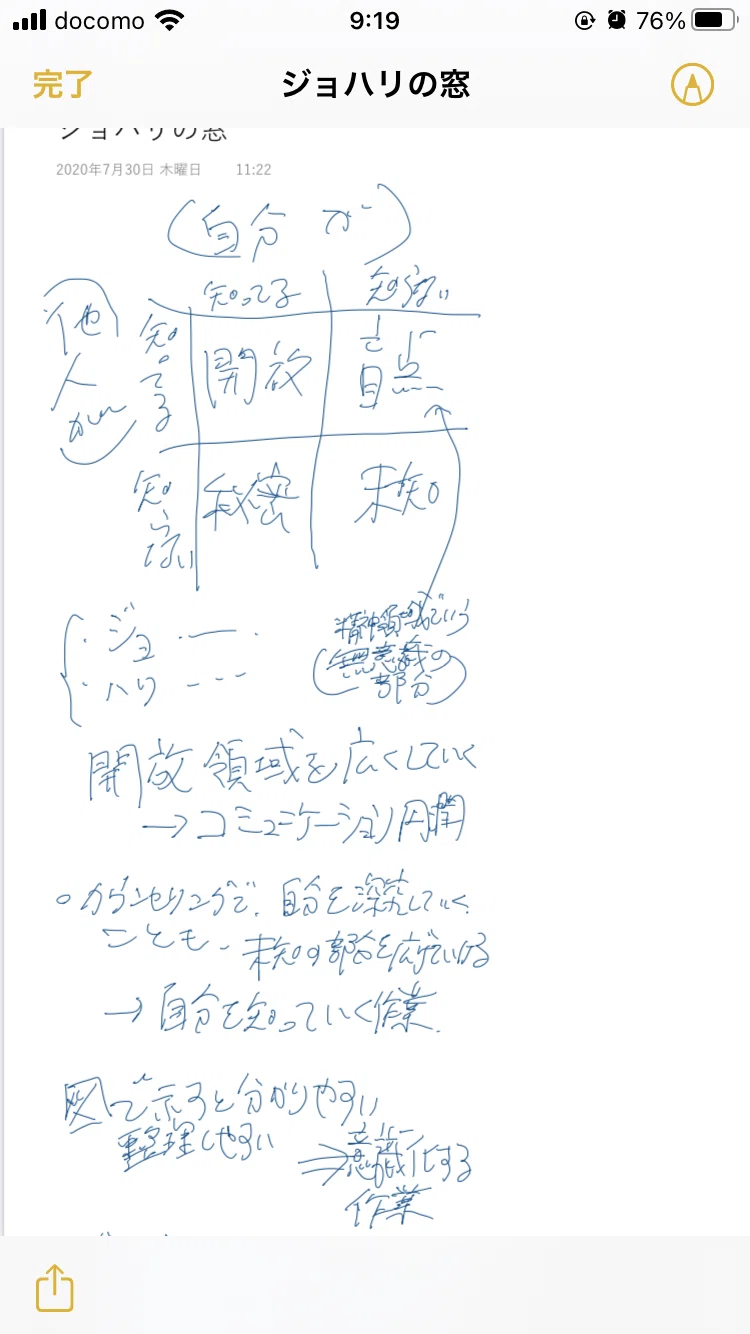 docomo 9:19 76%
完了 ジョハリの窓
ジョハリの窓
2020年7月30日 木曜日 11:22
(自分 が)
知ってる 知らない
他人が
知ってる 開放 盲点
知らない 秘密 未知
・ジョ ・―・
・ハリ ---
精神領域でいう
(無意識の
部分)
開放領域を広くしていく
→コミュニケーション円潤
○カウンセリングで、自分を深究していく
ことも、未知の部分を広げていける
→自分を知っていく作業
図で示すと分かりやすい
整理しやすい ⇒意識化する
作業